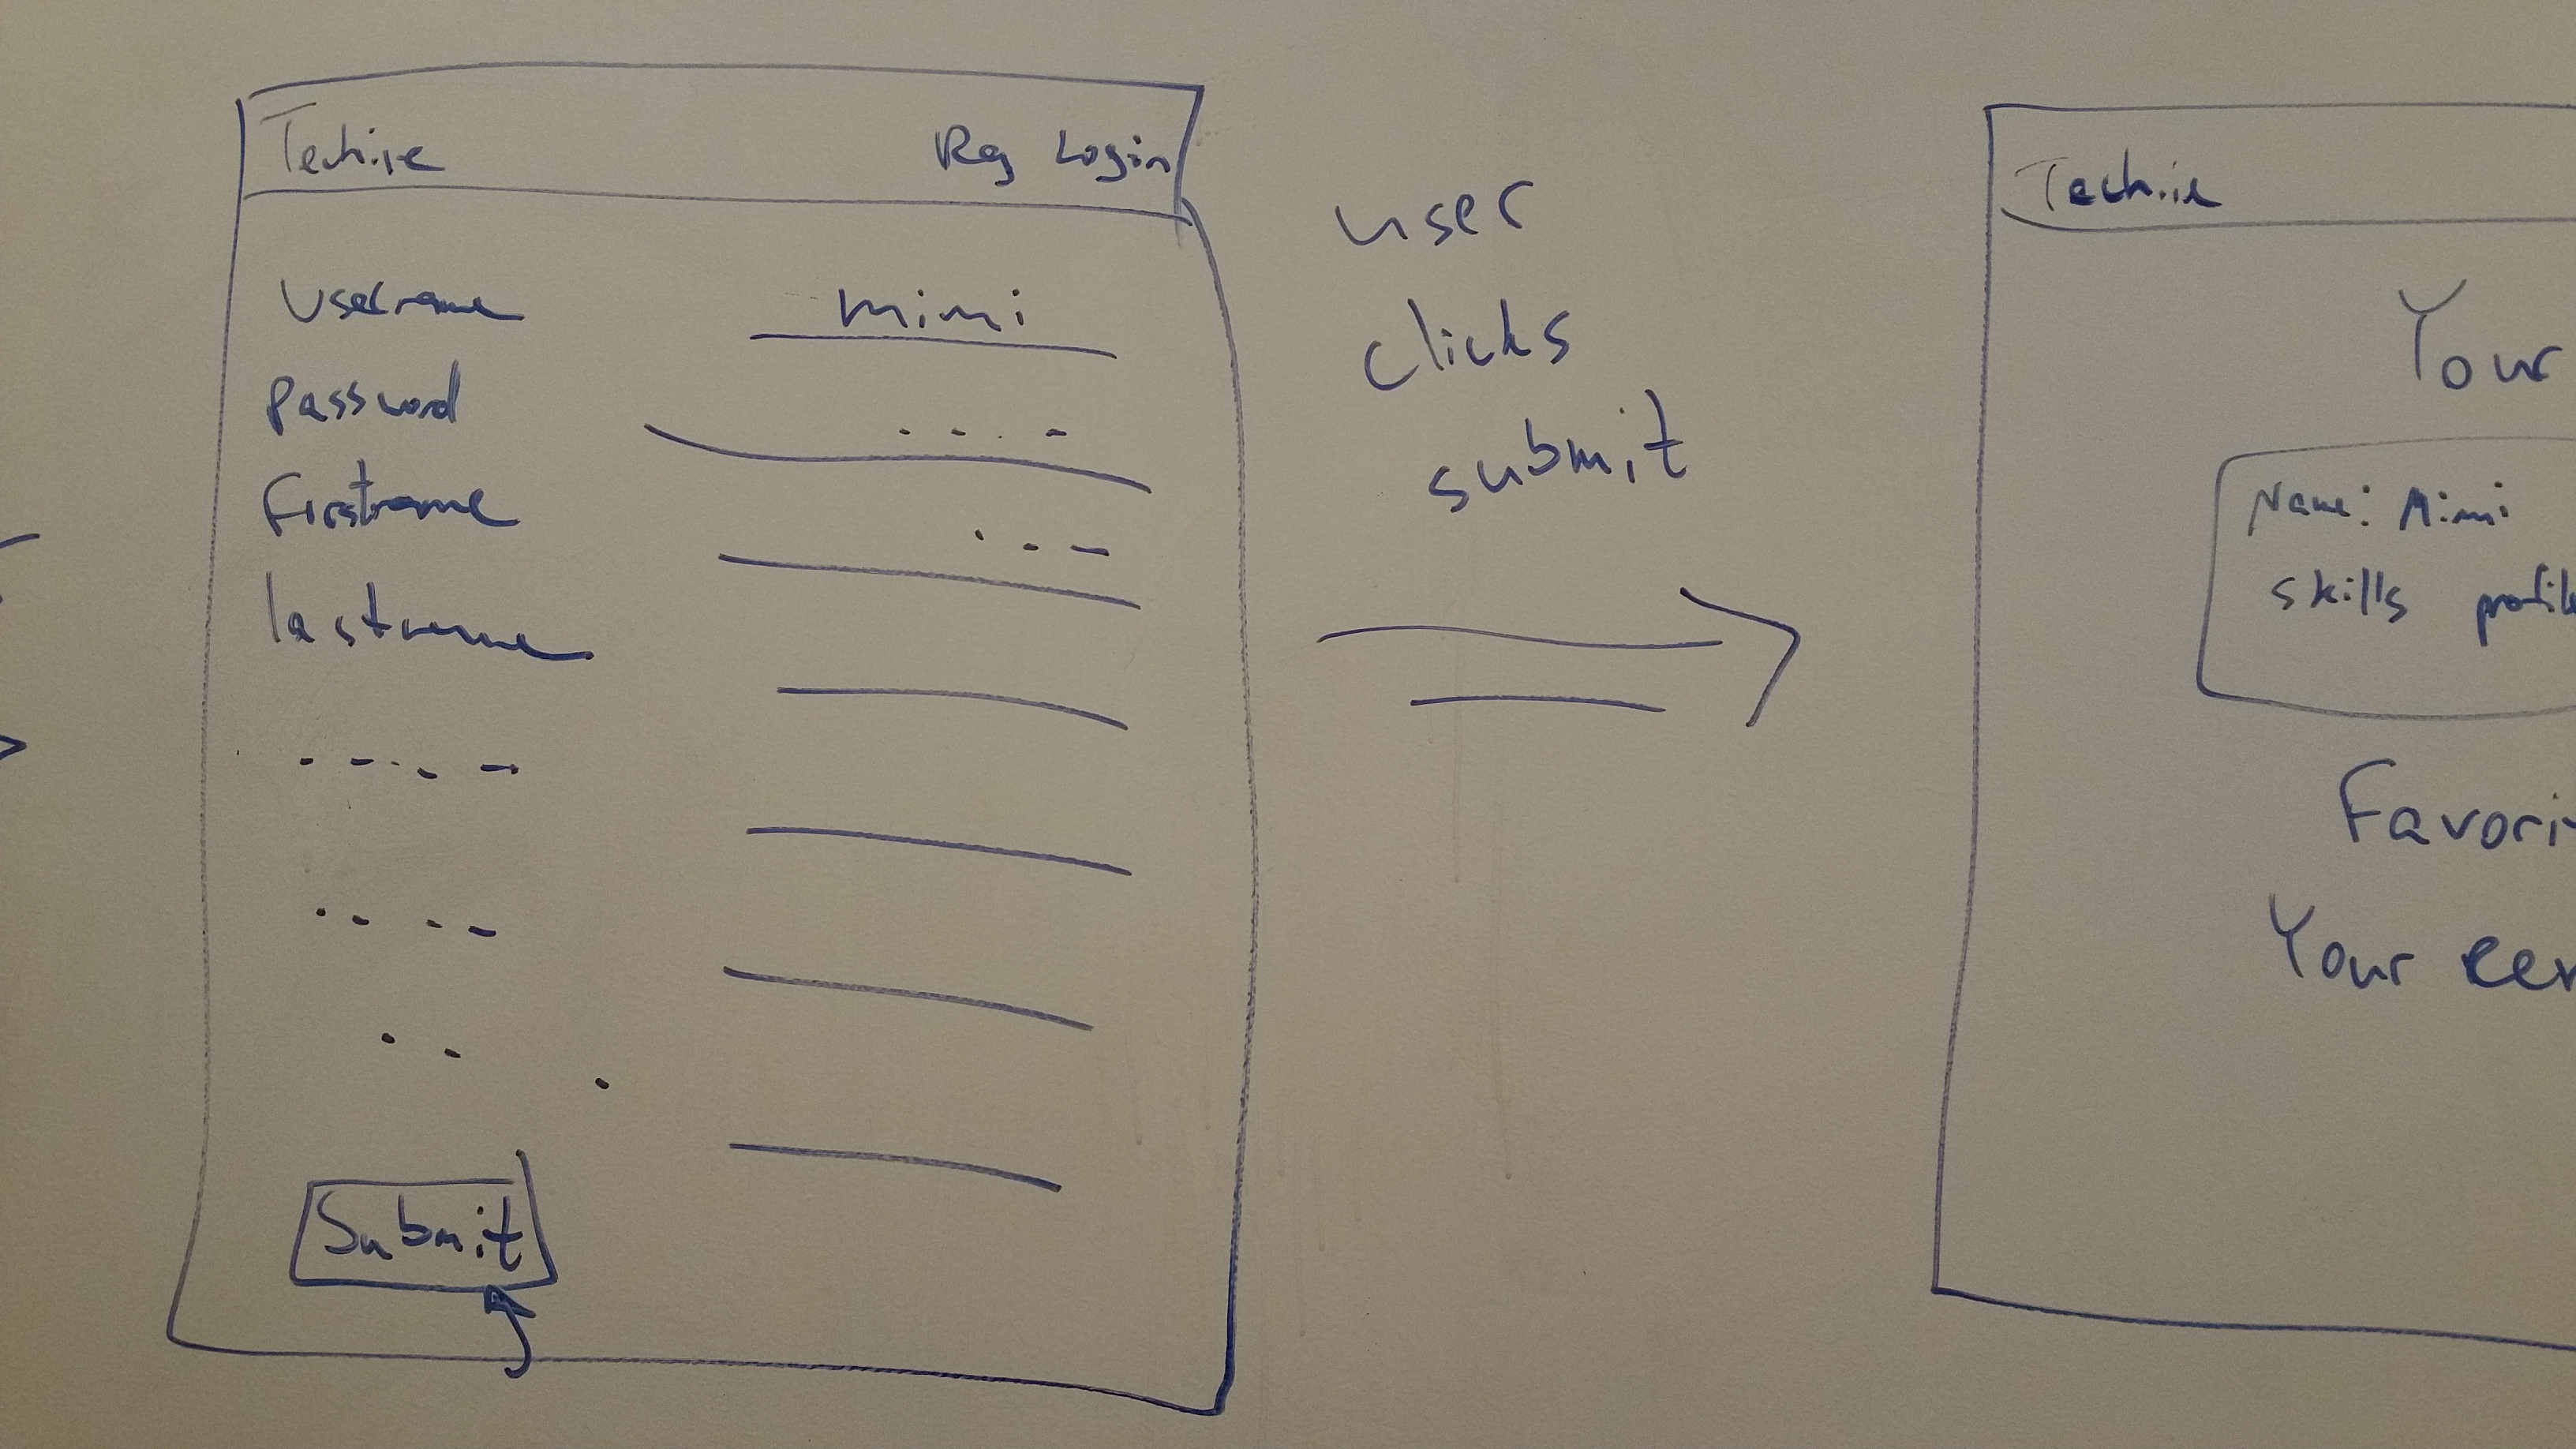 Tech.ie Reg Login
Username mimi
password
firstname
lastname
Submit
user
clicks
submit
Tech.ie
Your
Name: Mimi
skills profile
Favori
Your